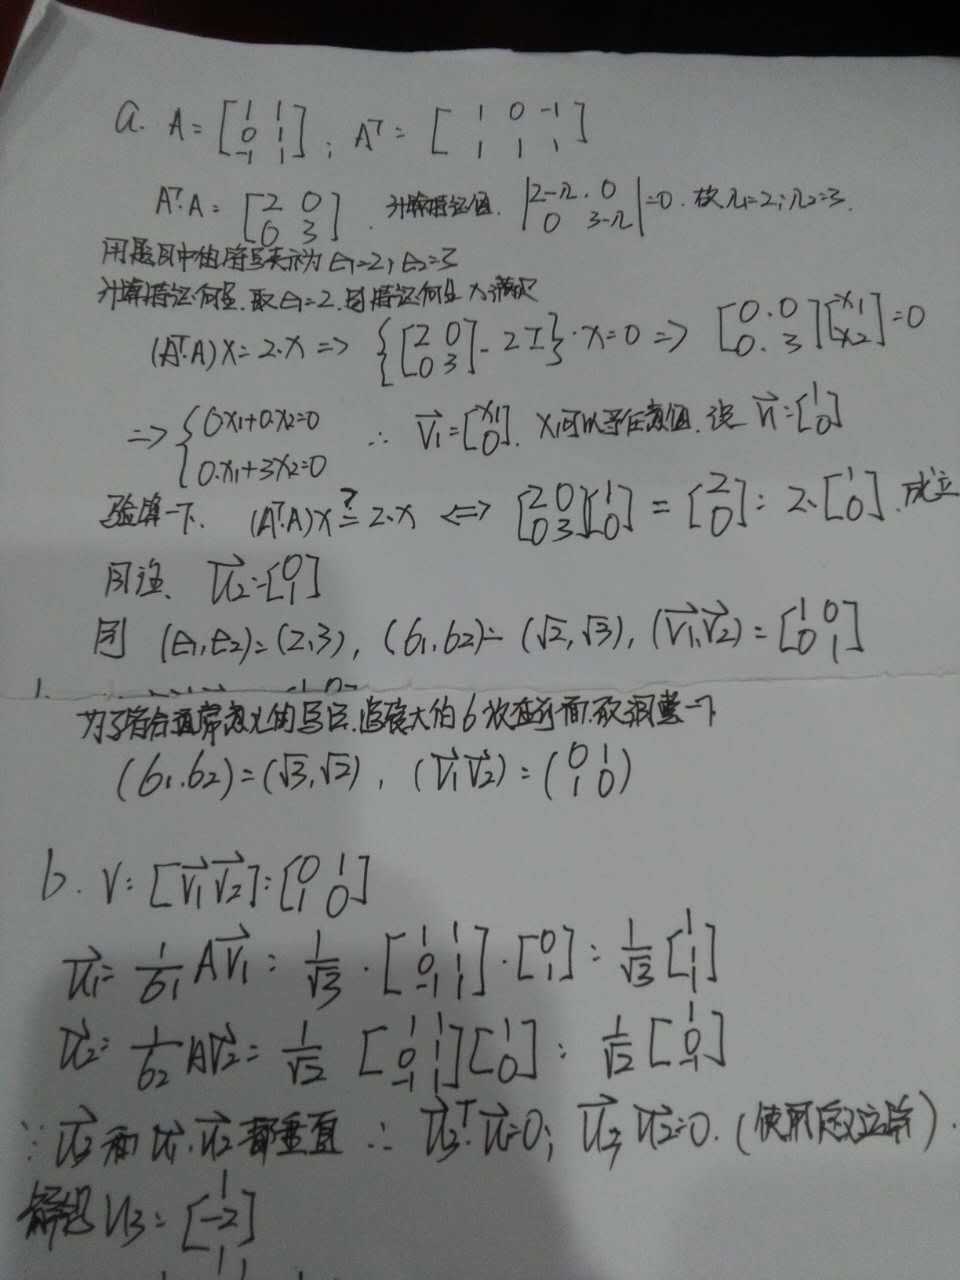 a. A = [1 1; 0 1; -1 1]; Aᵀ = [1 0 -1; 1 1 1]
Aᵀ·A = [2 0; 0 3]. 计算特征值. |2-λ 0; 0 3-λ| = 0. 故 λ1=2; λ2=3.
用题目中的符号表示为 E1=2, E2=3
计算特征向量. 取 E1=2. 特征向量 X 满足
(Aᵀ·A)X = 2·X => {[2 0; 0 3] - 2I}·X = 0 => [0 0; 0 3][x1; x2] = 0
=> {0x1+0x2=0; 0x1+3x2=0 ∴ V1 = [x1; 0]. x1可以是任意值. 设 V1 = [1; 0]
验算一下. (Aᵀ·A)X ?= 2·X <=> [2 0; 0 3][1; 0] = [2; 0] = 2·[1; 0]. 成立
同法. V2 = [0; 1]
则 (E1,E2) = (2,3), (σ1,σ2) = (√2,√3), (V1,V2) = [1 0; 0 1]
为了符合通常意义的写法. 将较大的σ放在前面. 故调整一下
(σ1,σ2) = (√3,√2), (V1 V2) = (0 1; 1 0)
b. V = [V1 V2] = [0 1; 1 0]
U1 = 1/σ1 AV1 = 1/√3 · [1 1; 0 1; -1 1]·[0; 1] = 1/√3 [1; 1; 1]
U2 = 1/σ2 AV2 = 1/√2 [1 1; 0 1; -1 1][1; 0] = 1/√2 [1; 0; -1]
∵ U3 和 U1, U2 都垂直 ∴ U3ᵀ·U1=0; U3 U2=0.
解得 U3 = [1; -2; 1]